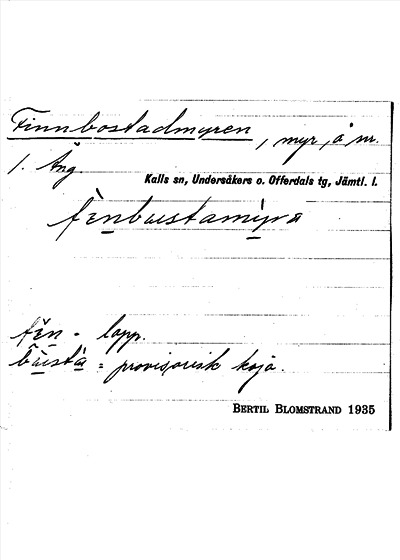 Finnbostadmyren, myr, å nr.
1. Äng.
Kalls sn, Undersåkers o. Offerdals tg, Jämtl. l.
fènbustamỳra
fèn = lapp.
bùstà = provisorisk koja.
BERTIL BLOMSTRAND 1935